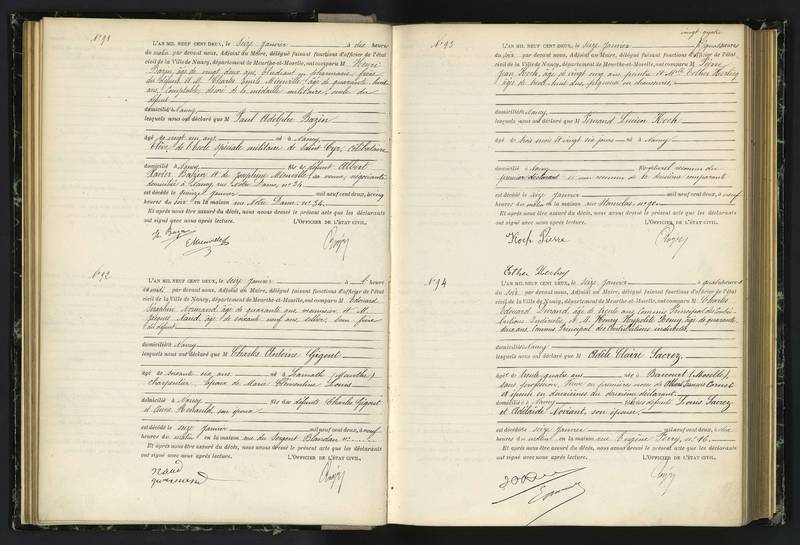 N° 91
L'AN MIL NEUF CENT DEUX, le seize Janvier à dix heures
du matin par devant nous, Adjoint au Maire, délégué faisant fonctions d'officier de l'état
civil de la Ville de Nancy, département de Meurthe-et-Moselle, ont comparu M Henri
Bazin, âgé de vingt deux ans, étudiant en pharmacie, frère
du défunt et M. Charles Emile Mienville, âgé de quarante huit
ans, Comptable, décoré de la médaille militaire, oncle du
défunt
domiciliés à Nancy
lesquels nous ont déclaré que M Paul Adolphe Bazin
âgé de vingt un ans né à Nancy
Elève de l'Ecole spéciale militaire de Saint Cyr, célibataire
domicilié à Nancy fils de défunt Albert
Xavier Bazin et de Joséphine Mienville sa veuve, négociante
domiciliée à Nancy, rue Notre Dame, n° 34
est décédé le quinze Janvier mil neuf cent deux, à cinq
heures du soir en la maison rue Notre Dame, n° 34.
Et après nous être assuré du décès, nous avons dressé le présent acte que les déclarants
ont signé avec nous après lecture. L'OFFICIER DE L'ÉTAT CIVIL,
H. Bazin
Mienville
N° 92
L'AN MIL NEUF CENT DEUX, le seize Janvier à heure
par devant nous, Adjoint au Maire, délégué faisant fonctions d'officier de l'état
civil de la Ville de Nancy, département de Meurthe-et-Moselle, ont comparu M Edouard
Séraphin Normand, âgé de quarante ans, menuisier et M.
Jacques Naud, âgé de soixante neuf ans, sellier, beau frère
du défunt
domiciliés à Nancy
lesquels nous ont déclaré que M Charles Antoine Gigout
âgé de soixante six ans né à Lamath (Meurthe)
charpentier, époux de Marie Clémentine Louis
domicilié à Nancy fils de défunts Charles Gigout
et Anne sa femme
est décédé le seize janvier mil neuf cent deux, à neuf
heures du matin en la maison rue du Sergent Blandan n°
Et après nous être assuré du décès, nous avons dressé le présent acte que les déclarants
ont signé avec nous après lecture. L'OFFICIER DE L'ÉTAT CIVIL,
naud
normand
N° 93
L'AN MIL NEUF CENT DEUX, le seize Janvier à quatre heures
du soir par devant nous, Adjoint au Maire, délégué faisant fonctions d'officier de l'état
civil de la Ville de Nancy, département de Meurthe-et-Moselle, ont comparu M Pierre
Jean Koch, âgé de vingt cinq ans, peintre et Melle Esther
âgée de trente huit ans, piqueuse en chaussures,
domiciliés à Nancy
lesquels nous ont déclaré que M Fernand Lucien Koch
âgé de trois mois et vingt six jours né à Nancy
domicilié à Nancy fils naturel reconnu du
premier déclarant et non reconnu de la deuxième comparant
est décédé le seize Janvier mil neuf cent deux, à neuf
heures du matin en la maison rue Stanislas, n° 90.
Et après nous être assuré du décès, nous avons dressé le présent acte que les déclarants
ont signé avec nous après lecture. L'OFFICIER DE L'ÉTAT CIVIL,
Koch Pierre
Esther
N° 94
L'AN MIL NEUF CENT DEUX, le seize Janvier à quatre heures
du soir par devant nous, Adjoint au Maire, délégué faisant fonctions d'officier de l'état
civil de la Ville de Nancy, département de Meurthe-et-Moselle, ont comparu M Charles
Edouard Durand, âgé de trente ans, commis Principal des Contri-
butions Indirectes, et M. Henry Hyppolite Fromy, âgé de quarante
deux ans, Commis Principal des Contributions indirectes,
domiciliés à Nancy
lesquels nous ont déclaré que M Adèle Claire Sacrez
âgée de trente quatre ans née à (Moselle)
sans profession, Veuve en premières noces de François Cornet
et épouse en deuxièmes du deuxième déclarant
domiciliée à Nancy fille de défunts Louis Sacrez
et Adélaïde Noirant, son épouse
est décédée le seize Janvier mil neuf cent deux, à dix
heures du matin en la maison rue Eugène Ferry, n° 16.
Et après nous être assuré du décès, nous avons dressé le présent acte que les déclarants
ont signé avec nous après lecture. L'OFFICIER DE L'ÉTAT CIVIL,